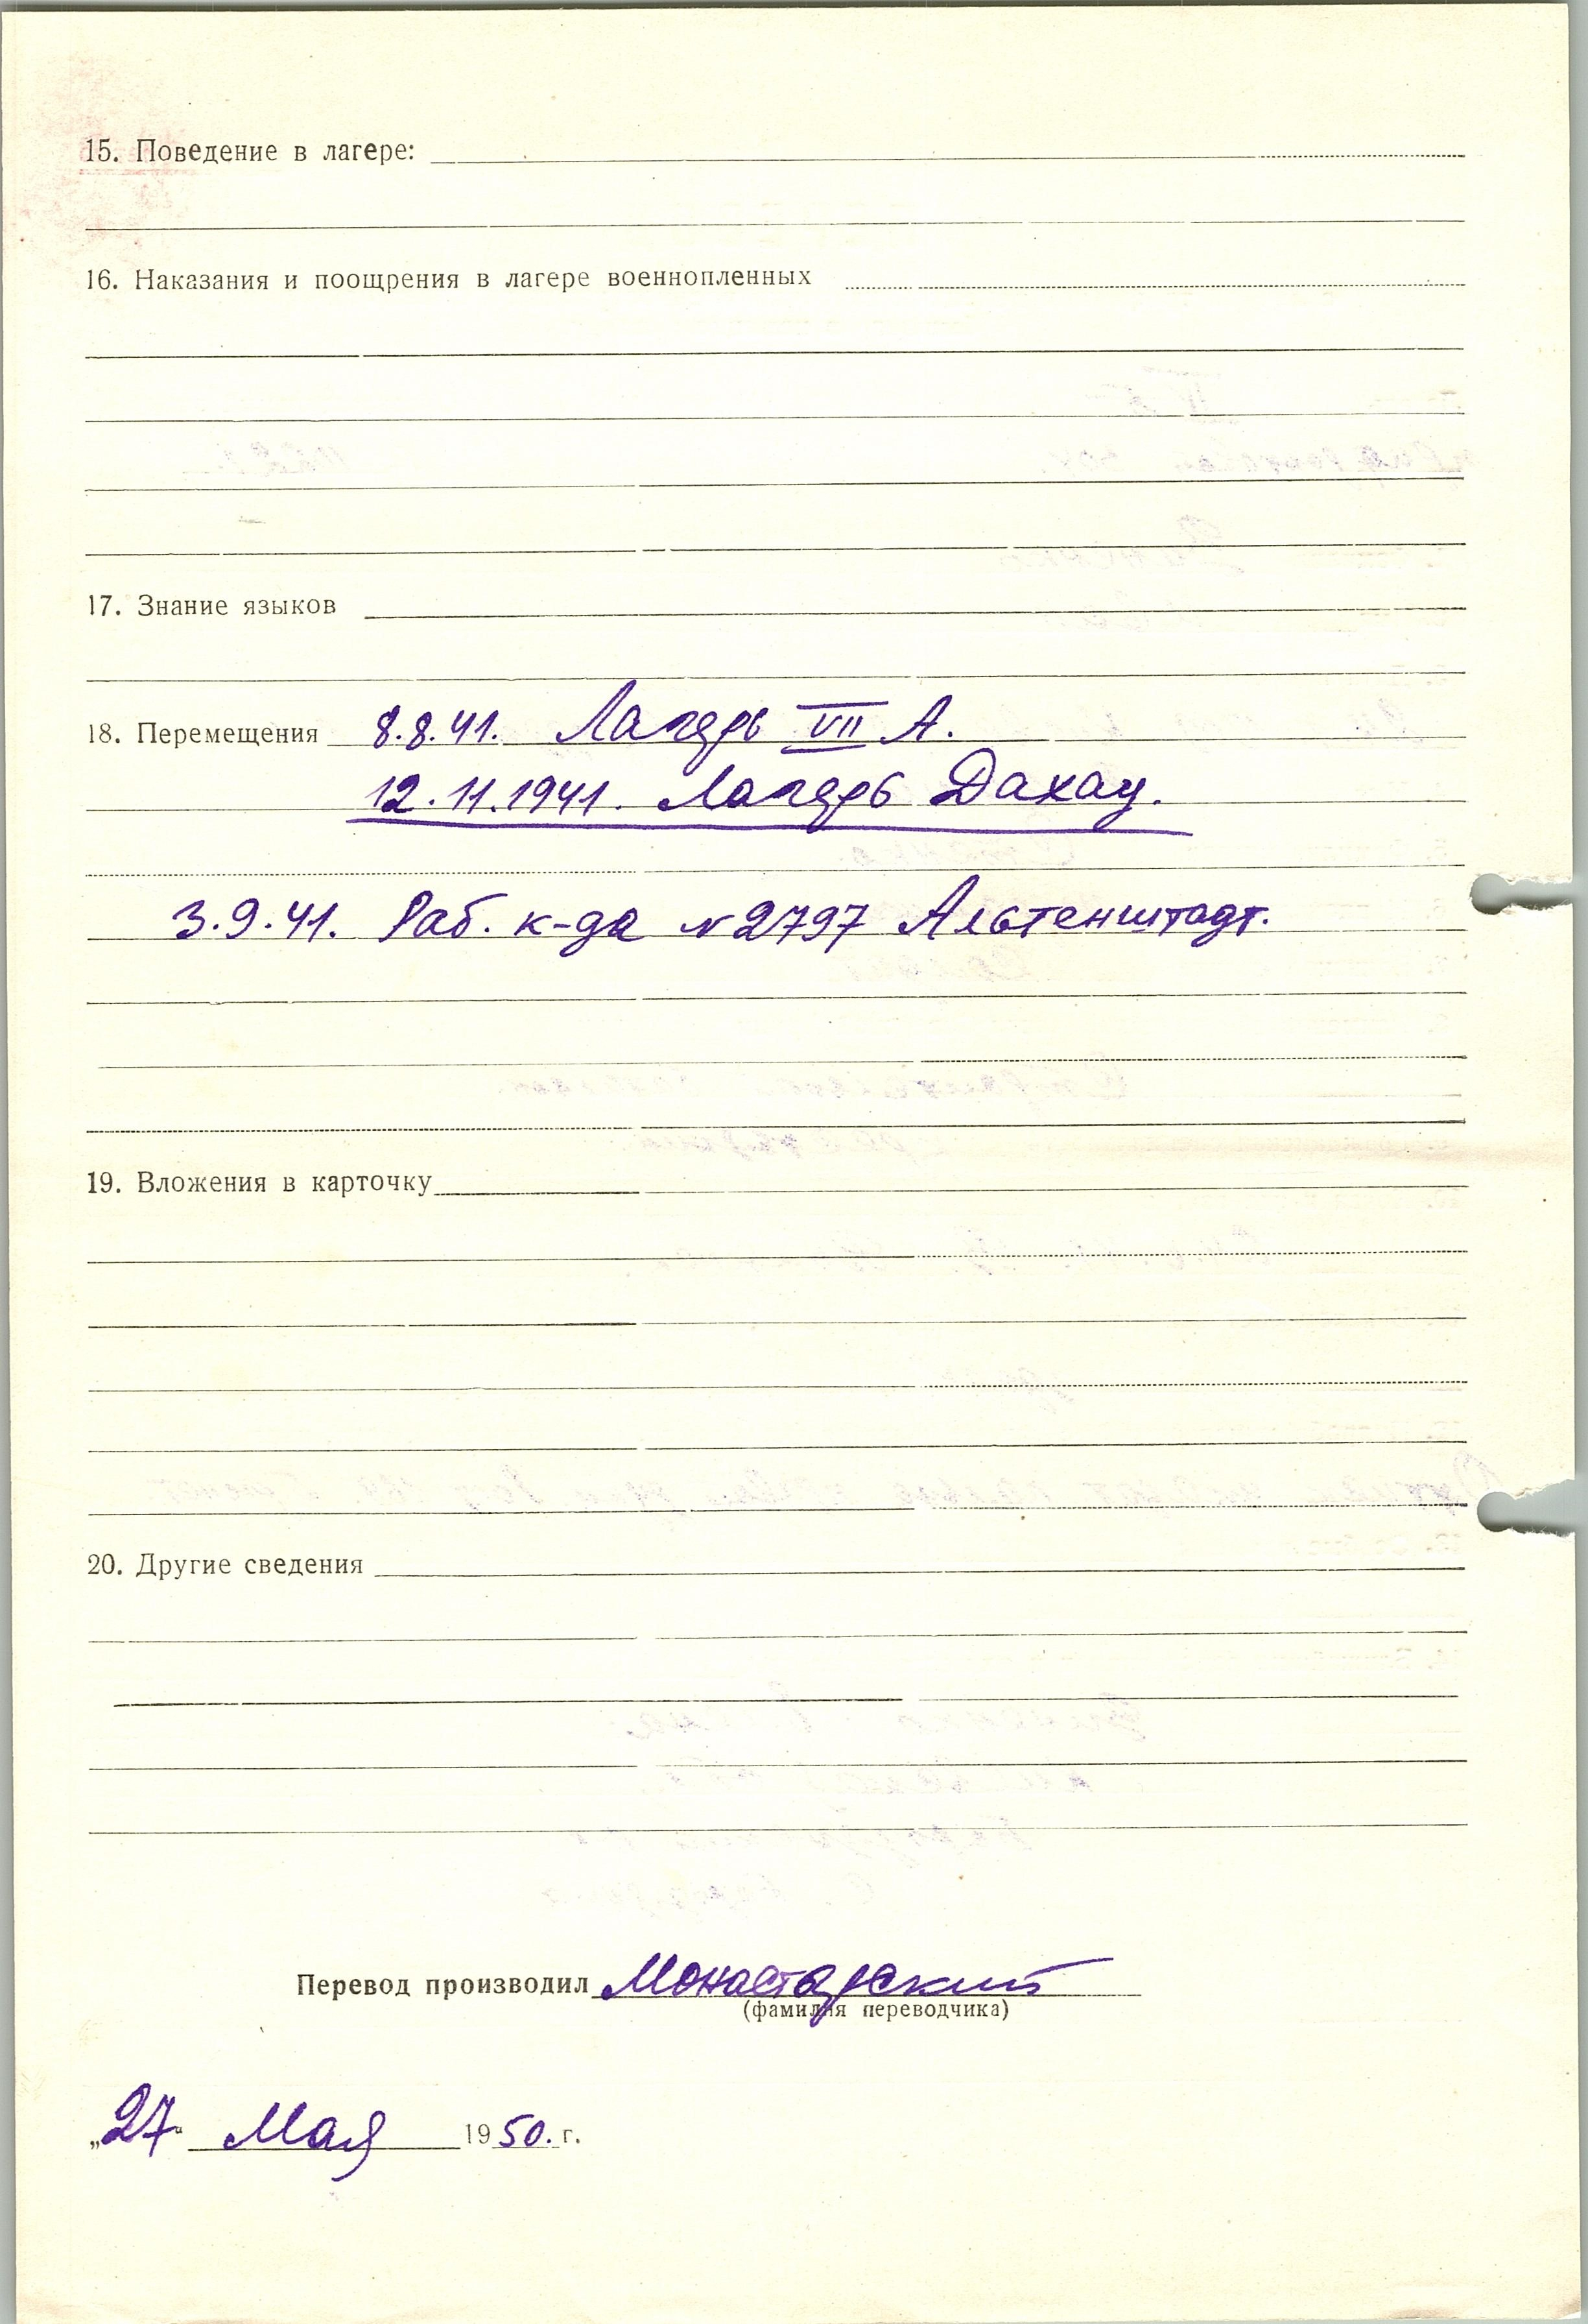 15. Поведение в лагере:
16. Наказания и поощрения в лагере военнопленных
17. Знание языков
18. Перемещения 8.8.41. Лагерь VII А.
12.11.1941. Лагерь Дахау.
3.9.41. Раб. к-да № 2797 Альтенштадт.
19. Вложения в карточку
20. Другие сведения
Перевод производил Монастырский
(фамилия переводчика)
„27“ Мая 1950. г.